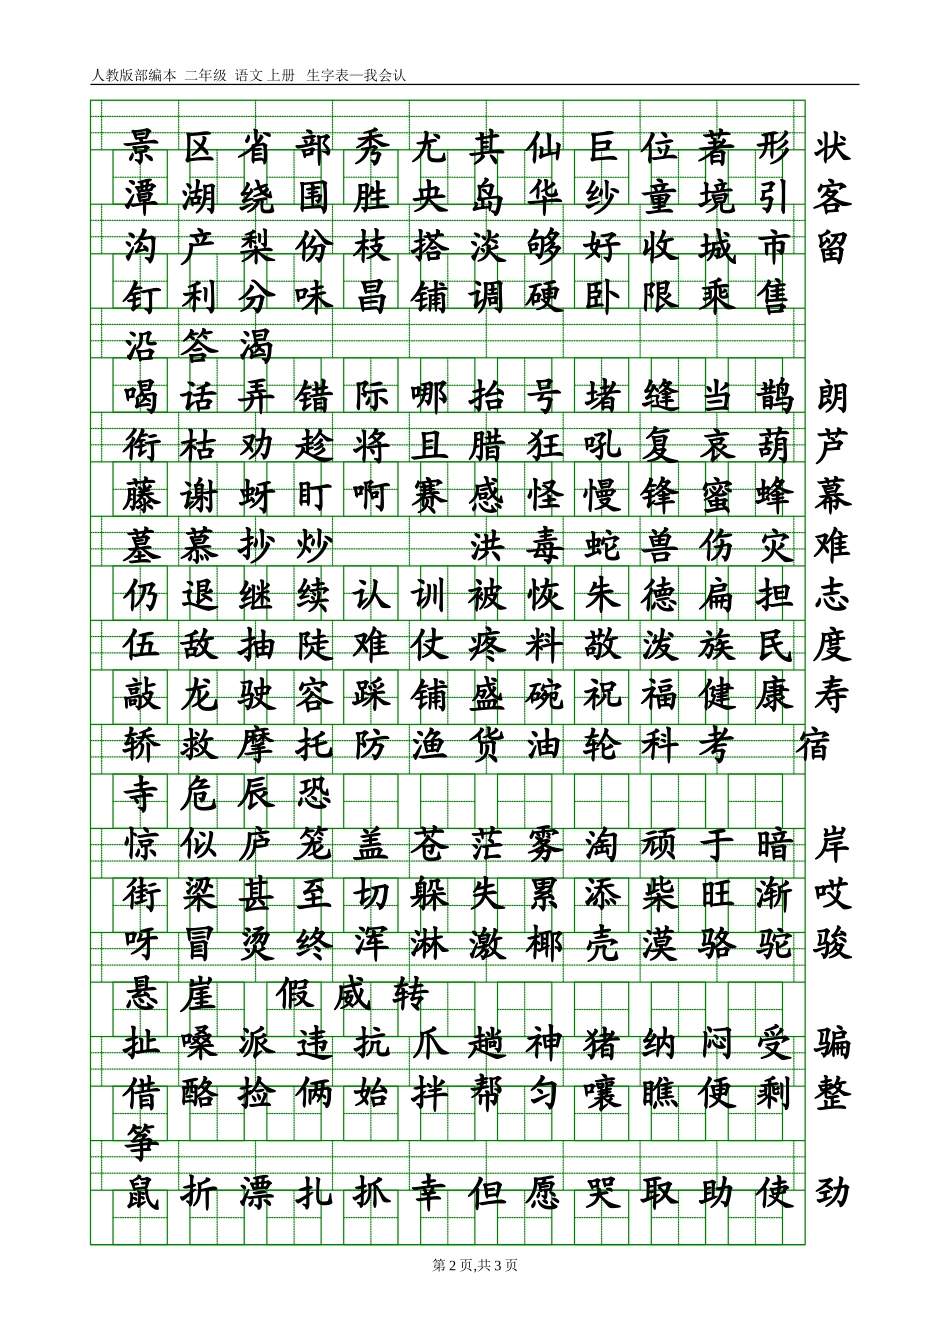 人教版部编本 二年级 语文上册 生字表—我会认
景 区 省 部 秀 尤 其 仙 巨 位 著 形 状
潭 湖 绕 围 胜 央 岛 华 纱 童 境 引 客
沟 产 梨 份 枝 搭 淡 够 好 收 城 市 留
钉 利 分 味 昌 铺 调 硬 卧 限 乘 售
沿 答 渴
喝 话 弄 错 际 哪 抬 号 堵 缝 当 鹊 朗
衔 枯 劝 趁 将 且 腊 狂 吼 复 哀 葫 芦
藤 谢 蚜 盯 啊 赛 感 怪 慢 锋 蜜 蜂 幕
墓 慕 抄 炒 洪 毒 蛇 兽 伤 灾 难
仍 退 继 续 认 训 被 恢 朱 德 扁 担 志
伍 敌 抽 陡 难 仗 疼 料 敬 泼 族 民 度
敲 龙 驶 容 踩 铺 盛 碗 祝 福 健 康 寿
轿 救 摩 托 防 渔 货 油 轮 科 考 宿
寺 危 辰 恐
惊 似 庐 笼 盖 苍 茫 雾 淘 顽 于 暗 岸
街 梁 甚 至 切 躲 失 累 添 柴 旺 渐 哎
呀 冒 烫 终 浑 淋 激 椰 壳 漠 骆 驼 骏
悬 崖 假 威 转
扯 嗓 派 违 抗 爪 趟 神 猪 纳 闷 受 骗
借 酪 捡 俩 始 拌 帮 匀 嚷 瞧 便 剩 整
筝
鼠 折 漂 扎 抓 幸 但 愿 哭 取 助 使 劲
第 2 页,共 3 页